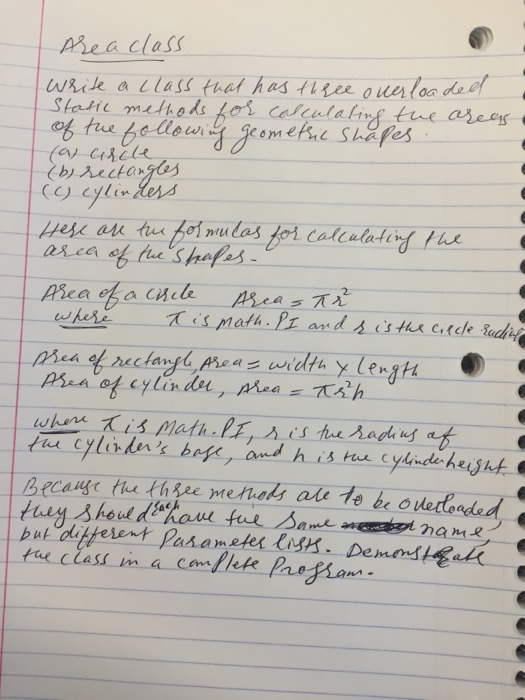 Area class
Write a class that has three overloaded
Static methods for calculating the areas
of the following geometric shapes.
(a) circle
(b) rectangles
(c) cylinders
Here are the formulas for calculating the
area of the shapes.
Area of a circle Area = πr²
where π is Math.PI and r is the circle radius
Area of rectangle, Area = width x Length
Area of cylinder, Area = πr²h
where π is Math.PI, r is the radius of
the cylinder's base, and h is the cylinder height.
Because the three methods are to be overloaded,
they should each have the same name,
but different Parameter lists. Demonstrate
the class in a complete Program.